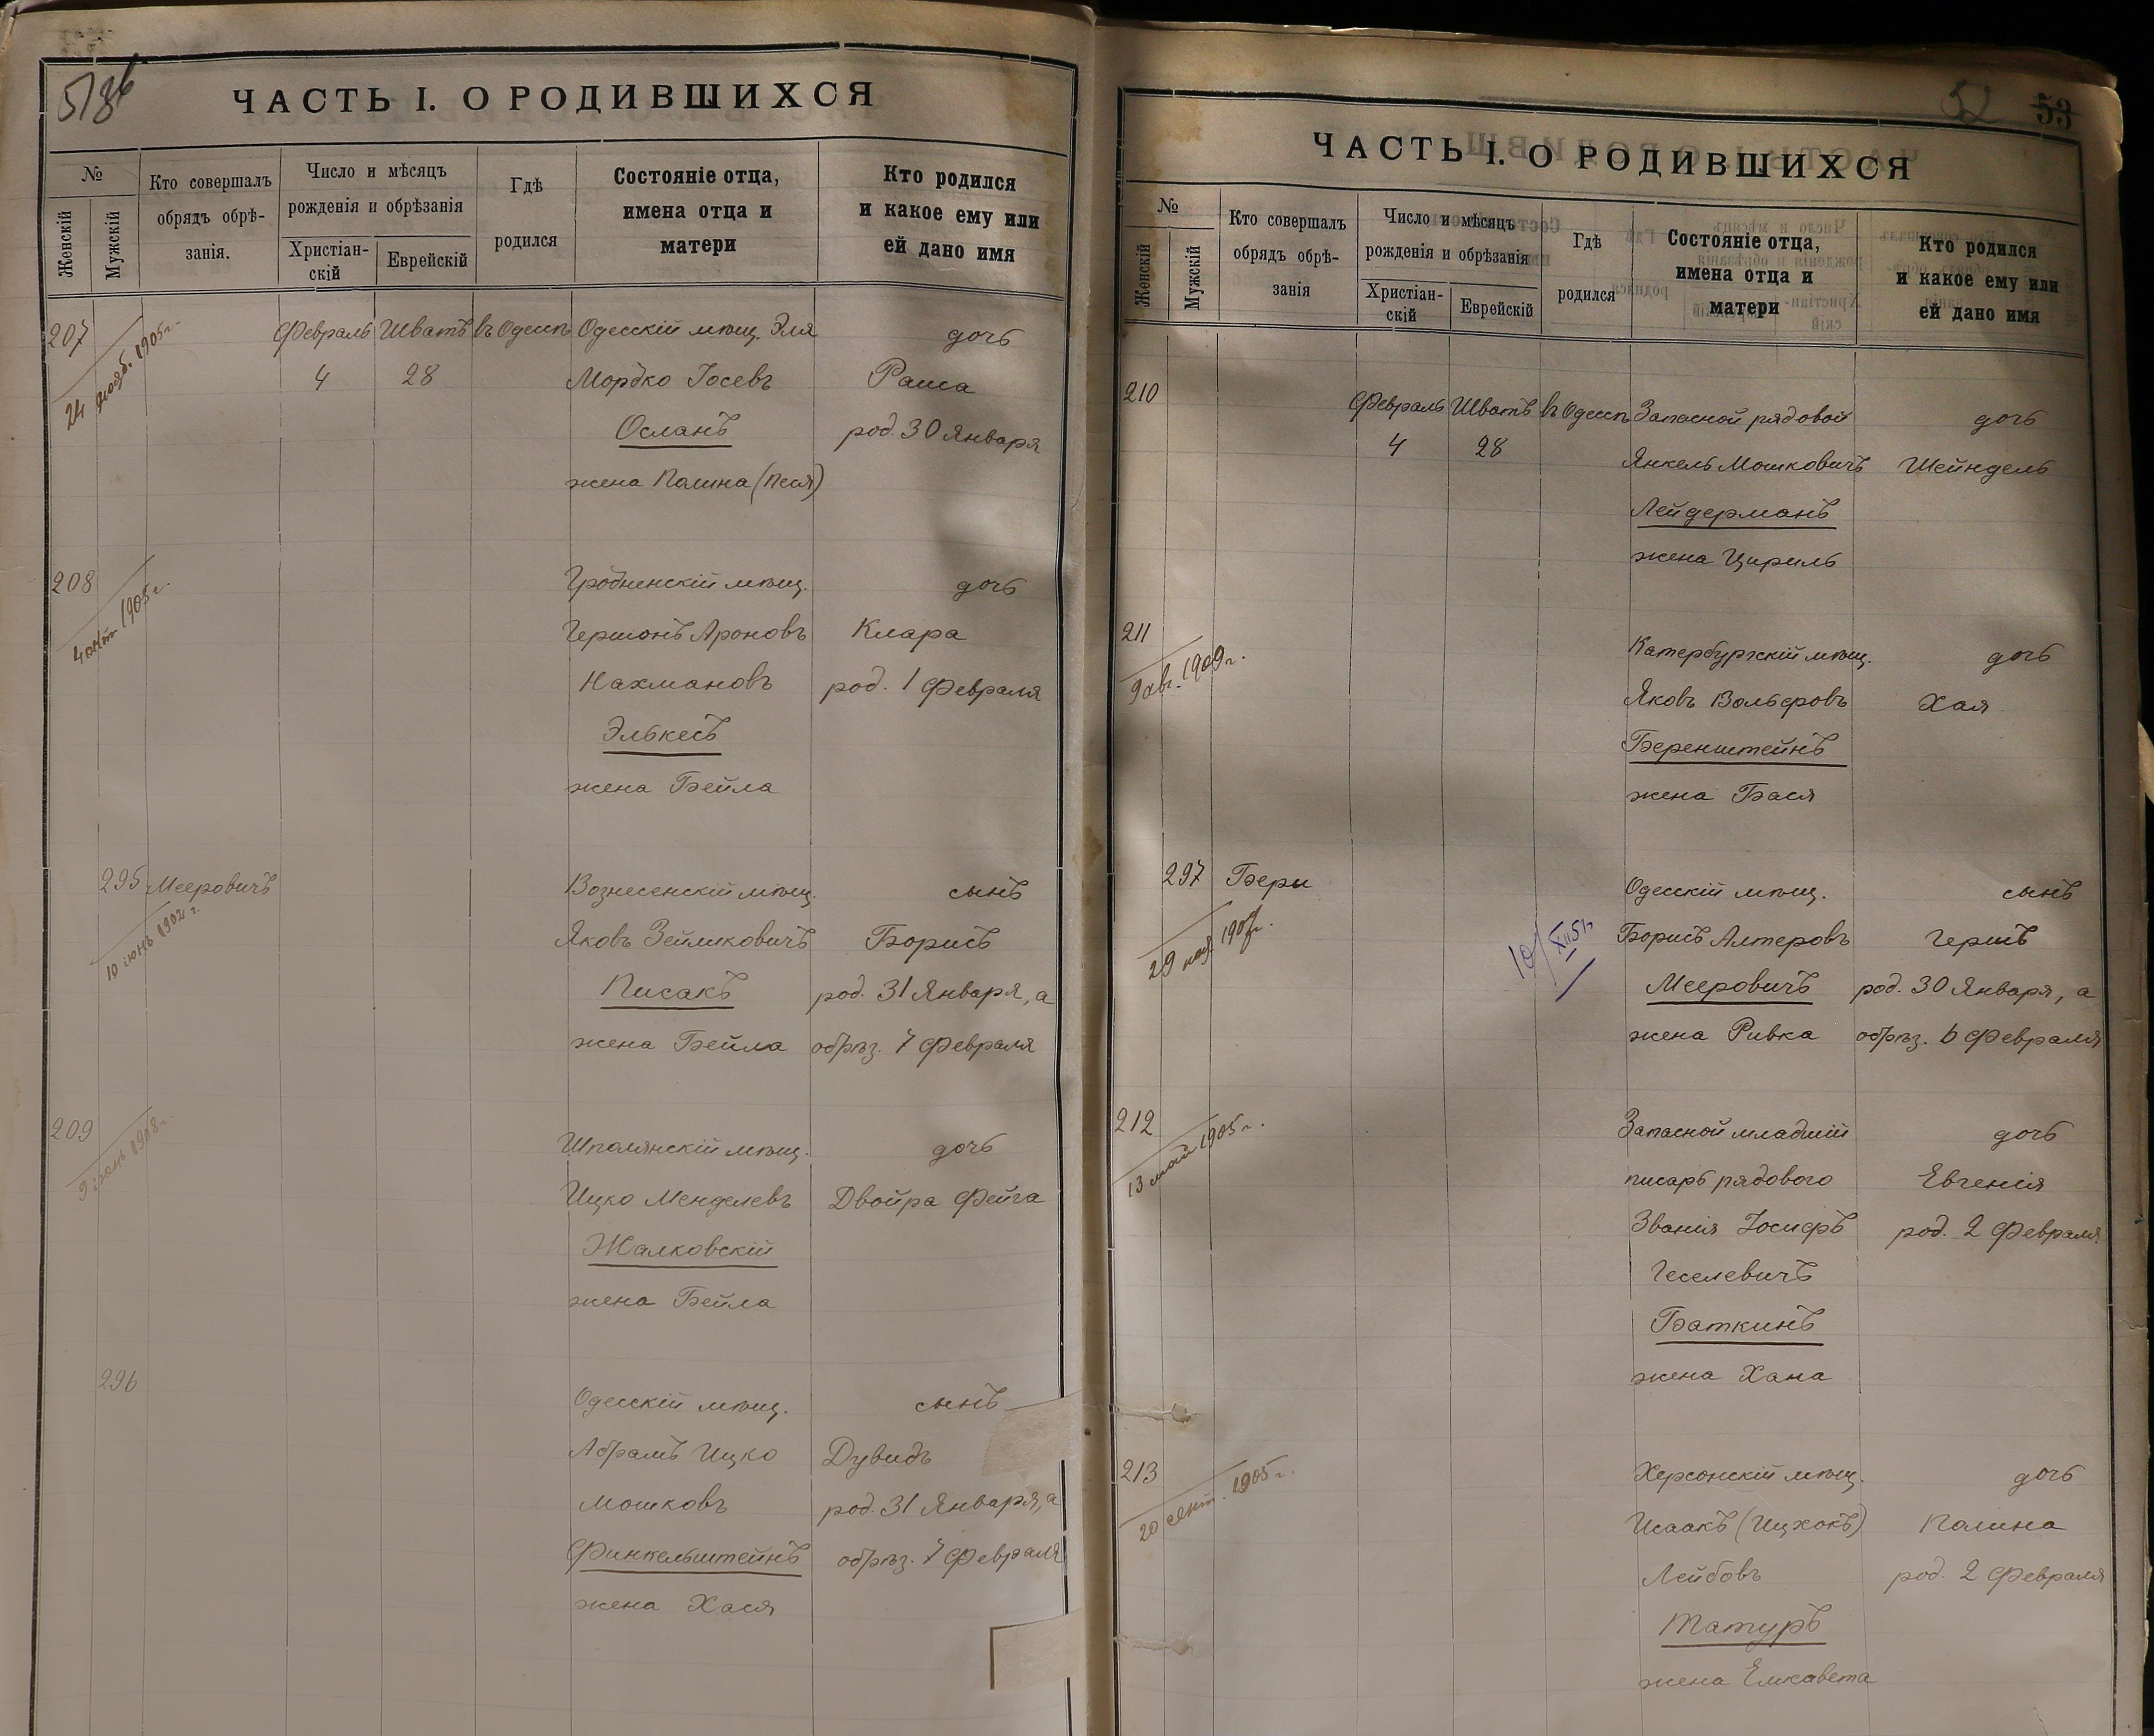 5186
ЧАСТЬ I. О РОДИВШИХСЯ
№
Женскій
Мужскій
Кто совершалъ
обрядъ обрѣ-
занія.
Число и мѣсяцъ
рожденія и обрѣзанія
Христіан-
скій
Еврейскій
Гдѣ
родился
Состояніе отца,
имена отца и
матери
Кто родился
и какое ему или
ей дано имя
207 Февраль Шватъ въ Одессѣ Одесскій мѣщ. Эля дочь
24 1905 г.
4 28 Мордко Іосевъ Раиса
Осланъ род. 30 Января
жена Полина (Песя)
208 Гродненскій мѣщ. дочь
4 окт 1905 г.
Гершонъ Ароновъ Клара
Нахмановъ род. 1 Февраля
Элькесъ
жена Бейла
295 Мееровичъ Вознесенскій мѣщ. сынъ
10 іюнь 1902 г.
Яковъ Зейликовичъ Борисъ
Писакъ род. 31 Января, а
жена Бейла обрѣз. 7 Февраля
209 Шполянскій мѣщ. дочь
9 1908 г.
Ицко Менделевъ Двойра Фейга
Жалковскій
жена Бейла
296 Одесскій мѣщ. сынъ
Абрамъ Ицко Дувидъ
Мошковъ род. 31 Января, а
Финкельштейнъ обрѣз. 7 Февраля
жена Хася
52 53
ЧАСТЬ I. О РОДИВШИХСЯ
№
Женскій
Мужскій
Кто совершалъ
обрядъ обрѣ-
занія
Число и мѣсяцъ
рожденія и обрѣзанія
Христіан-
скій
Еврейскій
Гдѣ
родился
Состояніе отца,
имена отца и
матери
Кто родился
и какое ему или
ей дано имя
210 Февраль Шватъ въ Одессѣ Запасной рядовой дочь
4 28 Янкель Мошковичъ Шейндель
Лейдерманъ
жена Цириль
211 Катербургскій мѣщ. дочь
9 авг. 1909 г.
Яковъ Вольфовъ Хая
Беренштейнъ
жена Бася
297 Беры Одесскій мѣщ. сынъ
29 ноя.
10/XII 51
Борисъ Алтеровъ Гершъ
Мееровичъ род. 30 Января, а
жена Ривка обрѣз. 6 Февраля
212 Запасной младшій дочь
13 май 1905 г.
писарь рядового Евгенія
Званія Іосифъ род. 2 Февраля
Геселевичъ
Баткинъ
жена Хана
213 Херсонскій мѣщ. дочь
20 сент. 1905 г.
Исаакъ (Ицхокъ) Полина
Лейбовъ род. 2 Февраля
Татуръ
жена Елисавета